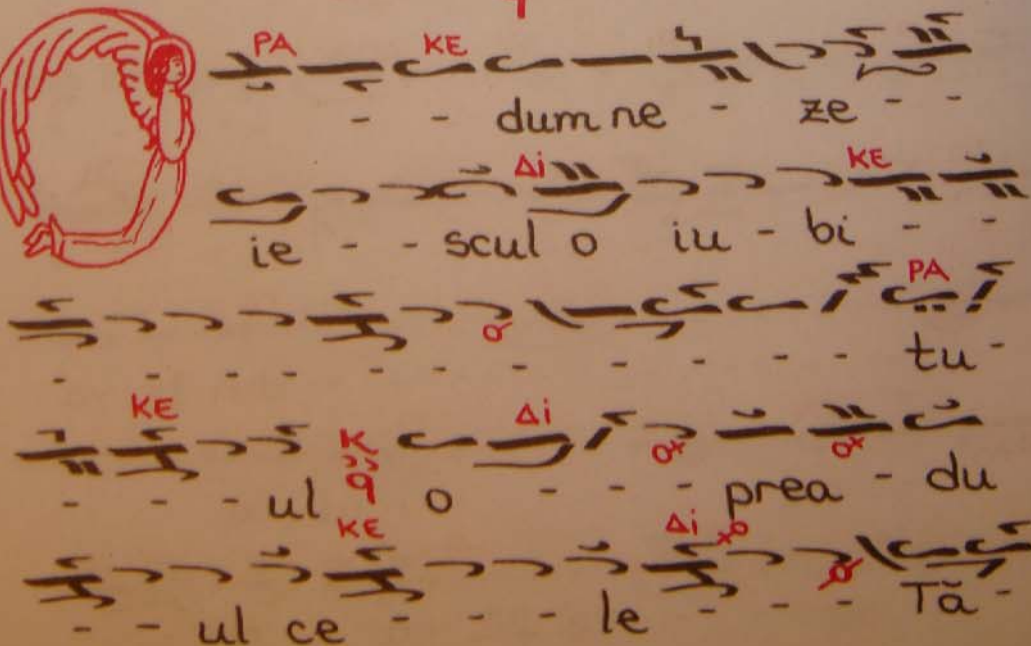 PA KE
- - dum ne - ze - -
Δi KE
ie - - scul o iu - bi - -
PA
- - - - - - - - - - tu -
KE Δi
- - - ul o - - - prea - du
KE Δi
- - ul ce - - - le - - - Tă -